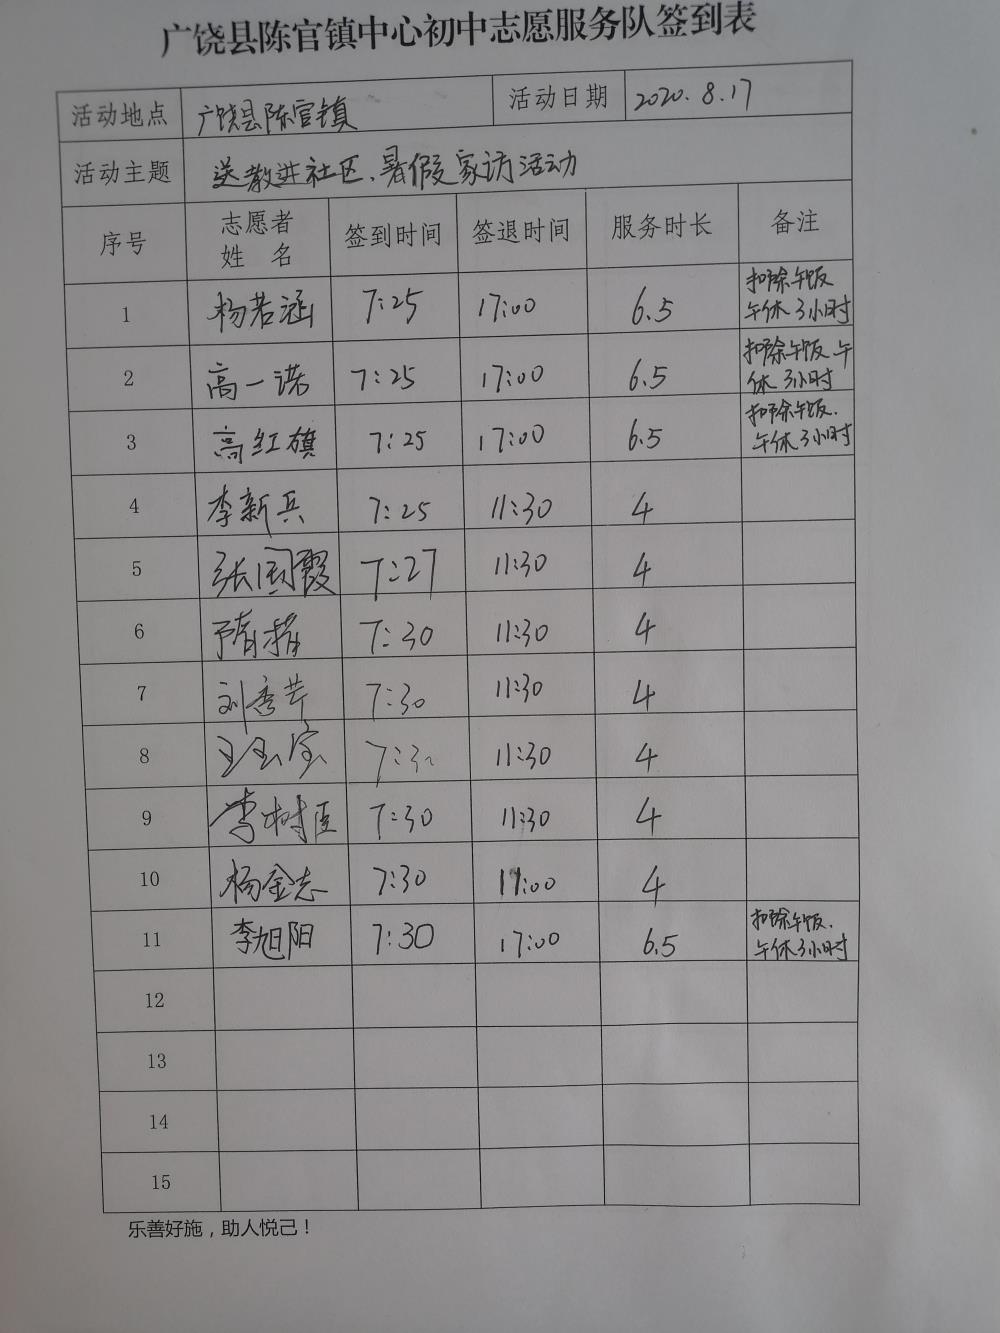 广饶县陈官镇中心初中志愿服务队签到表
活动地点 广饶县陈官镇 活动日期 2020.8.17
活动主题 送教进社区、暑假家访活动
序号 志愿者姓名 签到时间 签退时间 服务时长 备注
1 杨若涵 7:25 17:00 6.5 扣除午饭午休3小时
2 高一诺 7:25 17:00 6.5 扣除午饭、午休3小时
3 高红旗 7:25 17:00 6.5 扣除午饭、午休3小时
4 李新兵 7:25 11:30 4
5 张国霞 7:27 11:30 4
6 7:30 11:30 4
7 刘秀芹 7:30 11:30 4
8 王玉宝 7:30 11:30 4
9 李树臣 7:30 11:30 4
10 杨金志 7:30 4
11 李旭阳 7:30 17:00 6.5 扣除午饭、午休3小时
12
13
14
15
乐善好施，助人悦己！